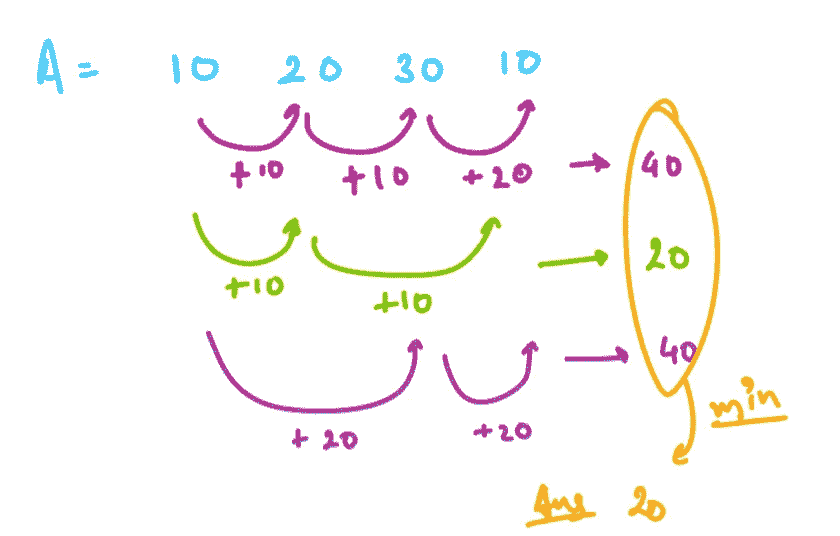 A = 10 20 30 10
+10 +10 +20 → 40
+10 +10 → 20
+20 +20 → 40
min
Ans 20